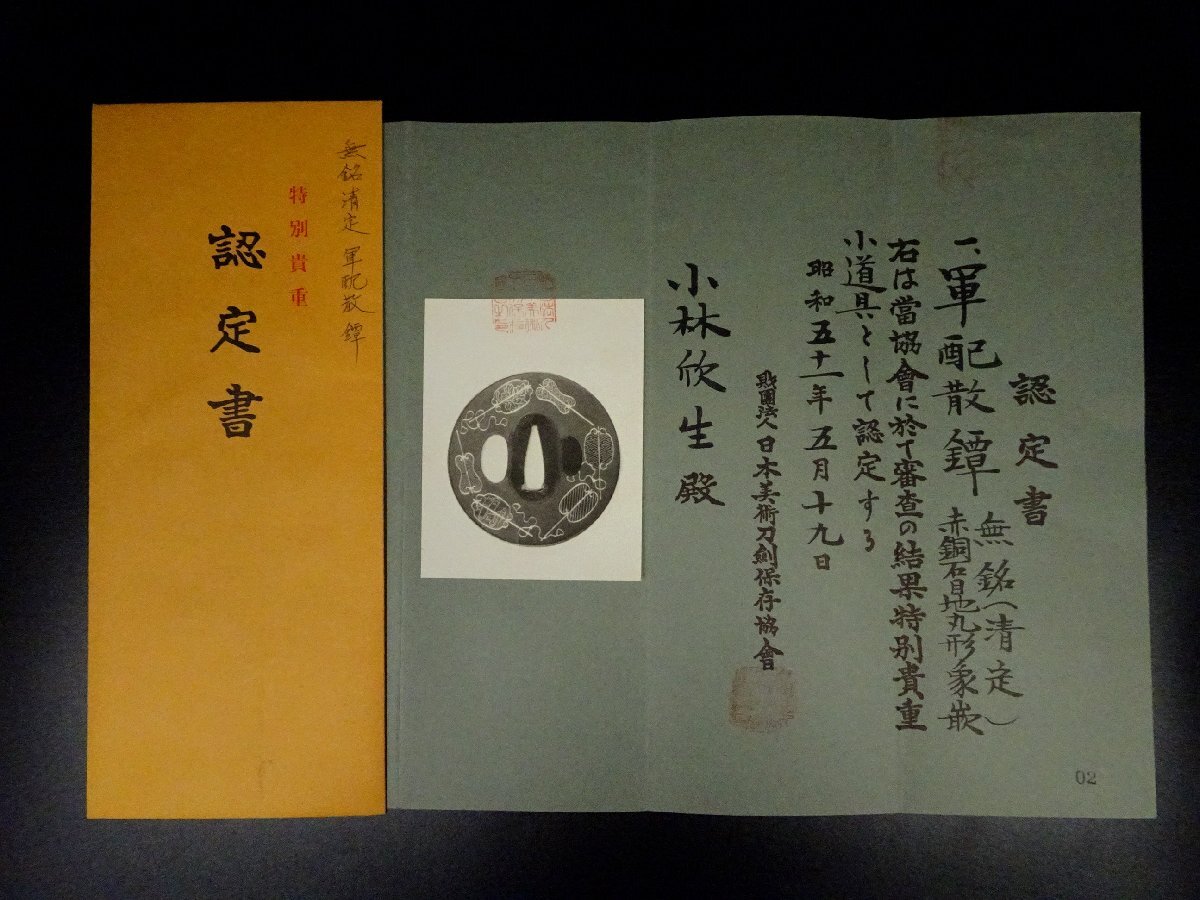 無銘清定 軍配散鐔
特別貴重
認定書
認定書
一、軍配散鐔
無銘(清定)
赤銅石目地丸形象嵌
右は當協會に於て審査の結果特別貴重
小道具として認定する
昭和五十一年五月十九日
財團法人日本美術刀劍保存協會
小林欣生殿
02